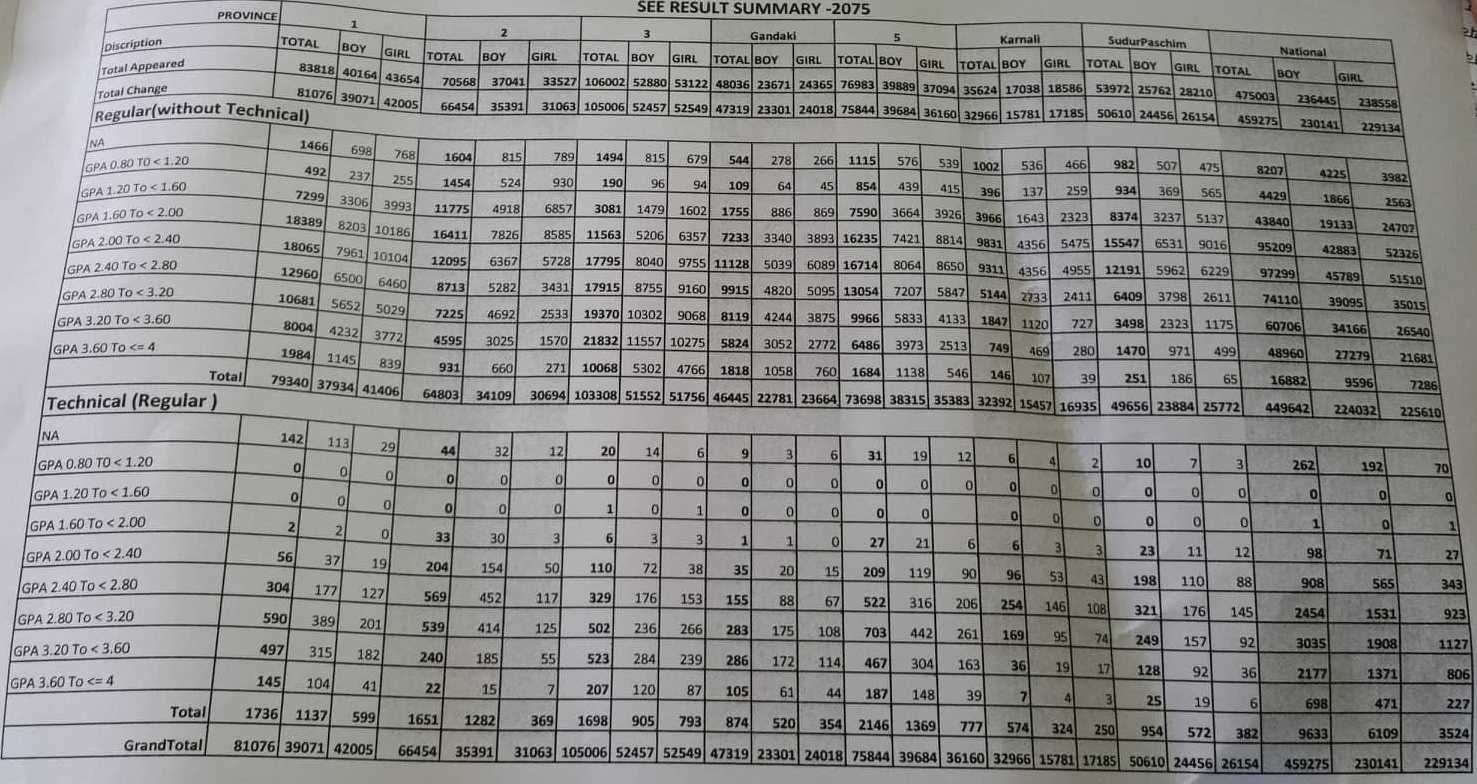 SEE RESULT SUMMARY -2075
PROVINCE 1 2 3 Gandaki 5 Karnali SudurPaschim National
Discription TOTAL BOY GIRL TOTAL BOY GIRL TOTAL BOY GIRL TOTAL BOY GIRL TOTAL BOY GIRL TOTAL BOY GIRL TOTAL BOY GIRL TOTAL BOY GIRL
Total Appeared 83818 40164 43654 70568 37041 33527 106002 52880 53122 48036 23671 24365 76983 39889 37094 35624 17038 18586 53972 25762 28210 475003 236445 238558
Total Change 81076 39071 42005 66454 35391 31063 105006 52457 52549 47319 23301 24018 75844 39684 36160 32966 15781 17185 50610 24456 26154 459275 230141 229134
Regular(without Technical)
NA 1466 698 768 1604 815 789 1494 815 679 544 278 266 1115 576 539 1002 536 466 982 507 475 8207 4225 3982
GPA 0.80 T0 < 1.20 492 237 255 1454 524 930 190 96 94 109 64 45 854 439 415 396 137 259 934 369 565 4429 1866 2563
GPA 1.20 To < 1.60 7299 3306 3993 11775 4918 6857 3081 1479 1602 1755 886 869 7590 3664 3926 3966 1643 2323 8374 3237 5137 43840 19133 24707
GPA 1.60 To < 2.00 18389 8203 10186 16411 7826 8585 11563 5206 6357 7233 3340 3893 16235 7421 8814 9831 4356 5475 15547 6531 9016 95209 42883 52326
GPA 2.00 To < 2.40 18065 7961 10104 12095 6367 5728 17795 8040 9755 11128 5039 6089 16714 8064 8650 9311 4356 4955 12191 5962 6229 97299 45789 51510
GPA 2.40 To < 2.80 12960 6500 6460 8713 5282 3431 17915 8755 9160 9915 4820 5095 13054 7207 5847 5144 2733 2411 6409 3798 2611 74110 39095 35015
GPA 2.80 To < 3.20 10681 5652 5029 7225 4692 2533 19370 10302 9068 8119 4244 3875 9966 5833 4133 1847 1120 727 3498 2323 1175 60706 34166 26540
GPA 3.20 To < 3.60 8004 4232 3772 4595 3025 1570 21832 11557 10275 5824 3052 2772 6486 3973 2513 749 469 280 1470 971 499 48960 27279 21681
GPA 3.60 To <= 4 1984 1145 839 931 660 271 10068 5302 4766 1818 1058 760 1684 1138 546 146 107 39 251 186 65 16882 9596 7286
Total 79340 37934 41406 64803 34109 30694 103308 51552 51756 46445 22781 23664 73698 38315 35383 32392 15457 16935 49656 23884 25772 449642 224032 225610
Technical (Regular )
NA 142 113 29 44 32 12 20 14 6 9 3 6 31 19 12 6 4 2 10 7 3 262 192 70
GPA 0.80 T0 < 1.20 0 0 0 0 0 0 0 0 0 0 0 0 0 0 0 0 0 0 0 0 0 0 0 0
GPA 1.20 To < 1.60 0 0 0 0 0 0 1 0 1 0 0 0 0 0 0 0 0 0 0 0 1 0 1
GPA 1.60 To < 2.00 2 2 0 33 30 3 6 3 3 1 1 0 27 21 6 6 3 3 23 11 12 98 71 27
GPA 2.00 To < 2.40 56 37 19 204 154 50 110 72 38 35 20 15 209 119 90 96 53 43 198 110 88 908 565 343
GPA 2.40 To < 2.80 304 177 127 569 452 117 329 176 153 155 88 67 522 316 206 254 146 108 321 176 145 2454 1531 923
GPA 2.80 To < 3.20 590 389 201 539 414 125 502 236 266 283 175 108 703 442 261 169 95 74 249 157 92 3035 1908 1127
GPA 3.20 To < 3.60 497 315 182 240 185 55 523 284 239 286 172 114 467 304 163 36 19 17 128 92 36 2177 1371 806
GPA 3.60 To <= 4 145 104 41 22 15 7 207 120 87 105 61 44 187 148 39 7 4 3 25 19 6 698 471 227
Total 1736 1137 599 1651 1282 369 1698 905 793 874 520 354 2146 1369 777 574 324 250 954 572 382 9633 6109 3524
GrandTotal 81076 39071 42005 66454 35391 31063 105006 52457 52549 47319 23301 24018 75844 39684 36160 32966 15781 17185 50610 24456 26154 459275 230141 229134